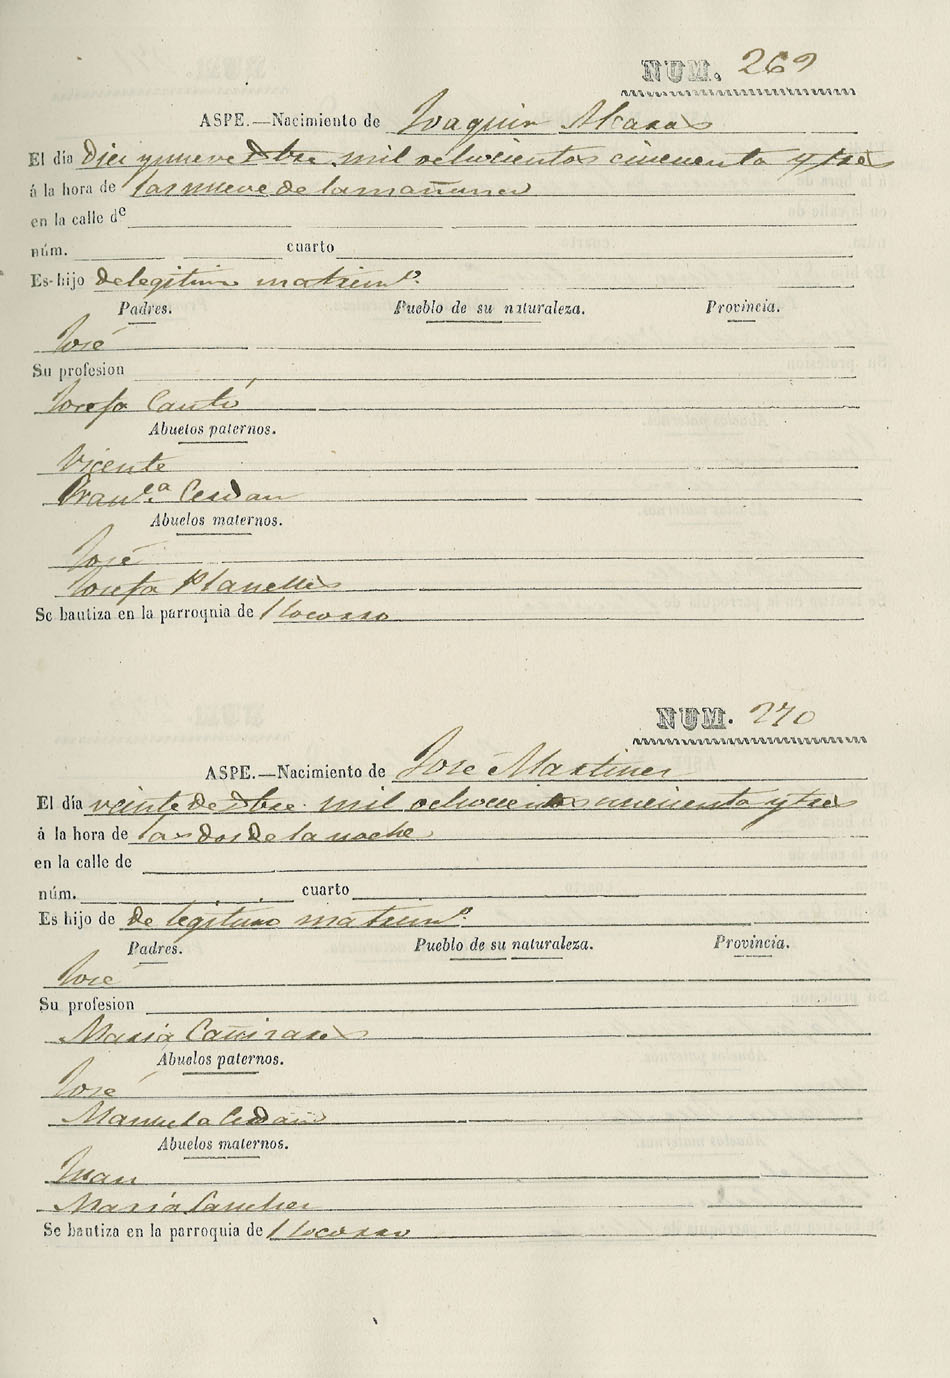 NUM. 269
ASPE.—Nacimiento de Joaquin Alcaras
El día diez y nueve Dbre mil ochocientos cincuenta y tres
á la hora de las nueve de la mañana
en la calle de
núm. cuarto
Es hijo de legitimo matrimº.
Padres. Pueblo de su naturaleza. Provincia.
José
Su profesion
Josefa Cantó
Abuelos paternos.
Vicente
Franca Cerdan
Abuelos maternos.
José
Josefa Planelles
Se bautiza en la parroquia de Socorro
NUM. 270
ASPE.—Nacimiento de José Martinez
El día veinte de Dbre. mil ochocientos cincuenta y tres
á la hora de las dos de la noche
en la calle de
núm. cuarto
Es hijo de de legitimo matrimº.
Padres. Pueblo de su naturaleza. Provincia.
José
Su profesion
Maria Cañizares
Abuelos paternos.
José
Manuela Cerdan
Abuelos maternos.
Juan
Maria Sanchez
Se bautiza en la parroquia de Socorro